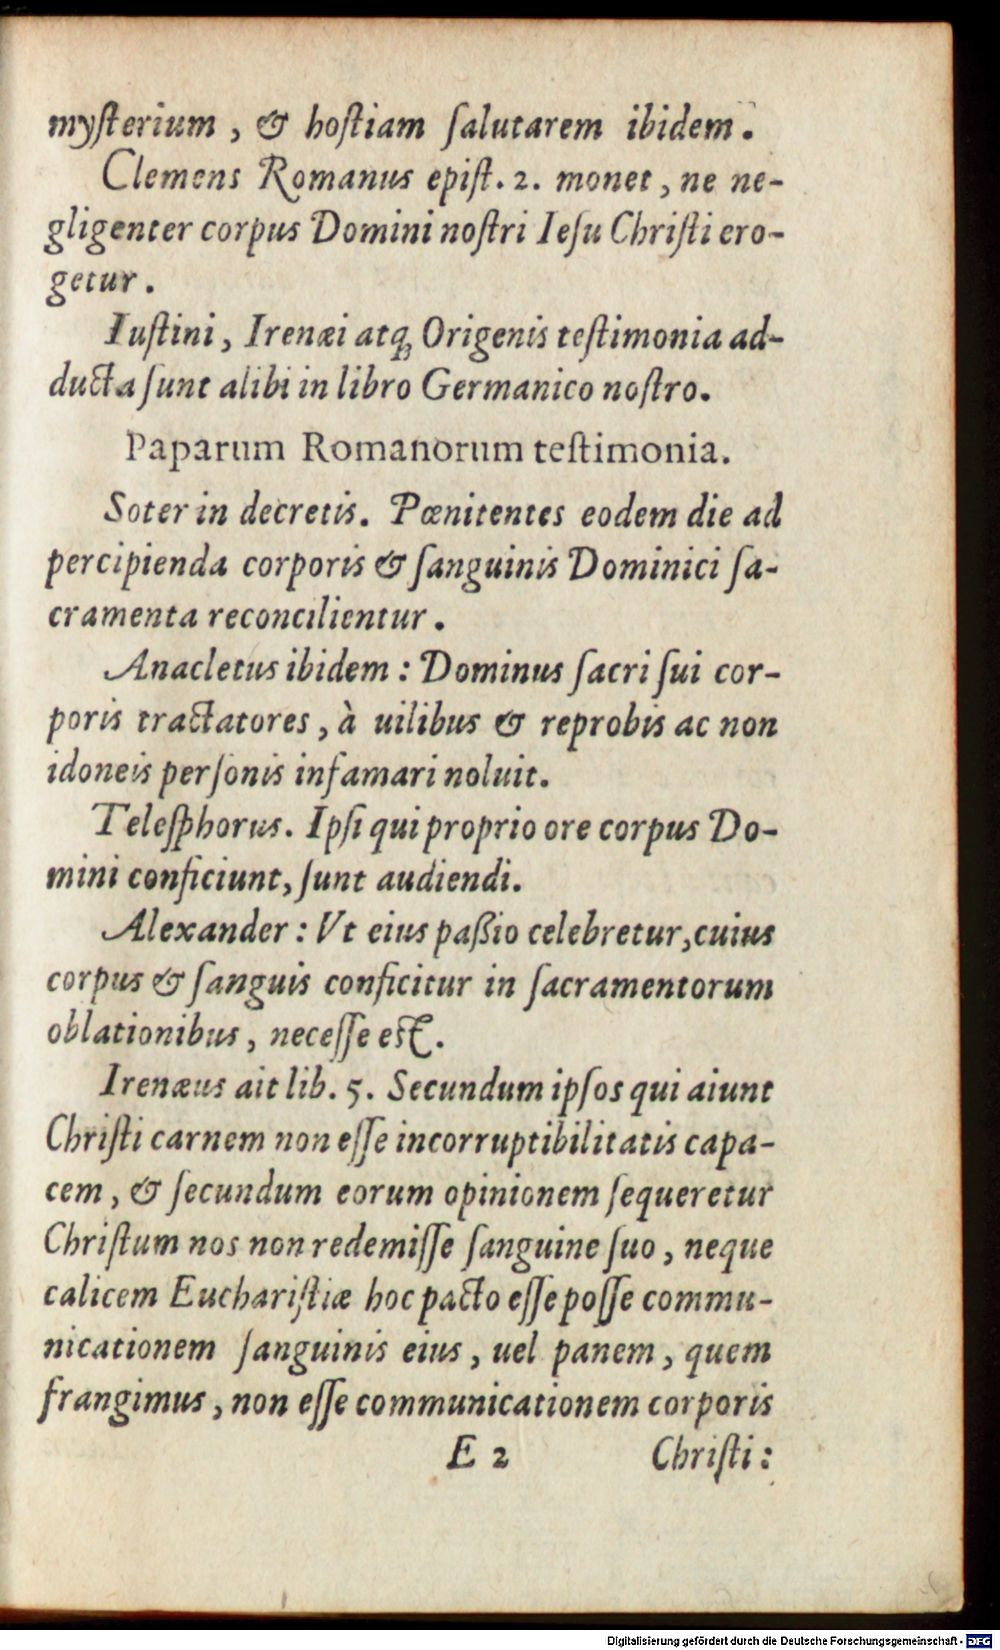 myſterium, & hoſtiam ſalutarem ibidem.
Clemens Romanus epiſt. 2. monet, ne ne-
gligenter corpus Domini noſtri Ieſu Chriſti ero-
getur.
Iuſtini, Irenæi atq́; Origenis teſtimonia ad-
ducta ſunt alibi in libro Germanico noſtro.
Paparum Romanorum teſtimonia.
Soter in decretis. Pœnitentes eodem die ad
percipienda corporis & ſanguinis Dominici ſa-
cramenta reconcilientur.
Anacletus ibidem: Dominus ſacri ſui cor-
poris tractatores, à uilibus & reprobis ac non
idoneis perſonis infamari noluit.
Teleſphorus. Ipſi qui proprio ore corpus Do-
mini conficiunt, ſunt audiendi.
Alexander: Vt eius paßio celebretur, cuius
corpus & ſanguis conficitur in ſacramentorum
oblationibus, neceſſe eſt.
Irenæus ait lib. 5. Secundum ipſos qui aiunt
Chriſti carnem non eſſe incorruptibilitatis capa-
cem, & ſecundum eorum opinionem ſequeretur
Chriſtum nos non redemiſſe ſanguine ſuo, neque
calicem Euchariſtiæ hoc pacto eſſe poſſe commu-
nicationem ſanguinis eius, uel panem, quem
frangimus, non eſſe communicationem corporis
E 2 Chriſti:
Digitalisierung gefördert durch die Deutsche Forschungsgemeinschaft - DFG